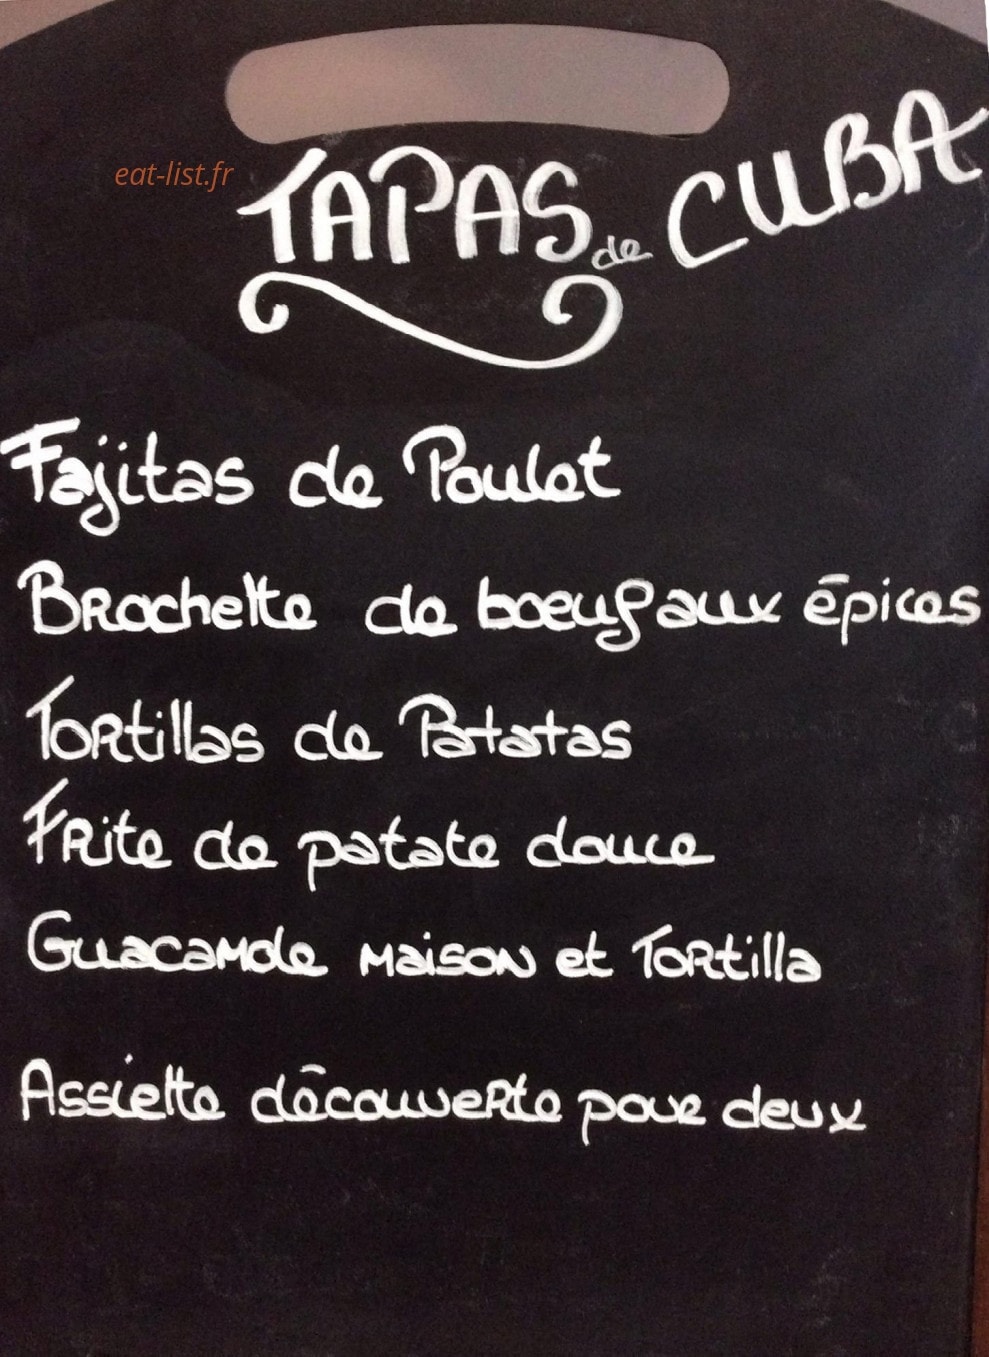 eat-list.fr
TAPAS de CUBA
Fajitas de Poulet
Brochette de boeuf aux épices
Tortillas de Patatas
Frite de patate douce
Guacamole maison et Tortilla
Assiette découverte pour deux